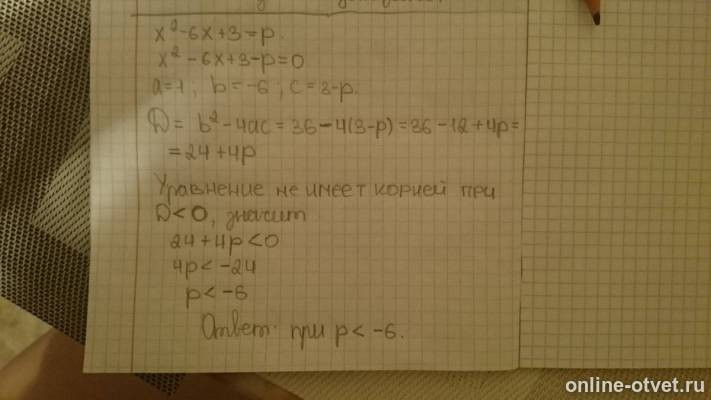 x² - 6x + 3 = p.
x² - 6x + 3 - p = 0
a = 1; b = -6; c = 3 - p.
D = b² - 4ac = 36 - 4(3 - p) = 36 - 12 + 4p =
= 24 + 4p
Уравнение не имеет корней при
D < 0, значит
24 + 4p < 0
4p < -24
p < -6
Ответ: при p < -6.
online-otvet.ru